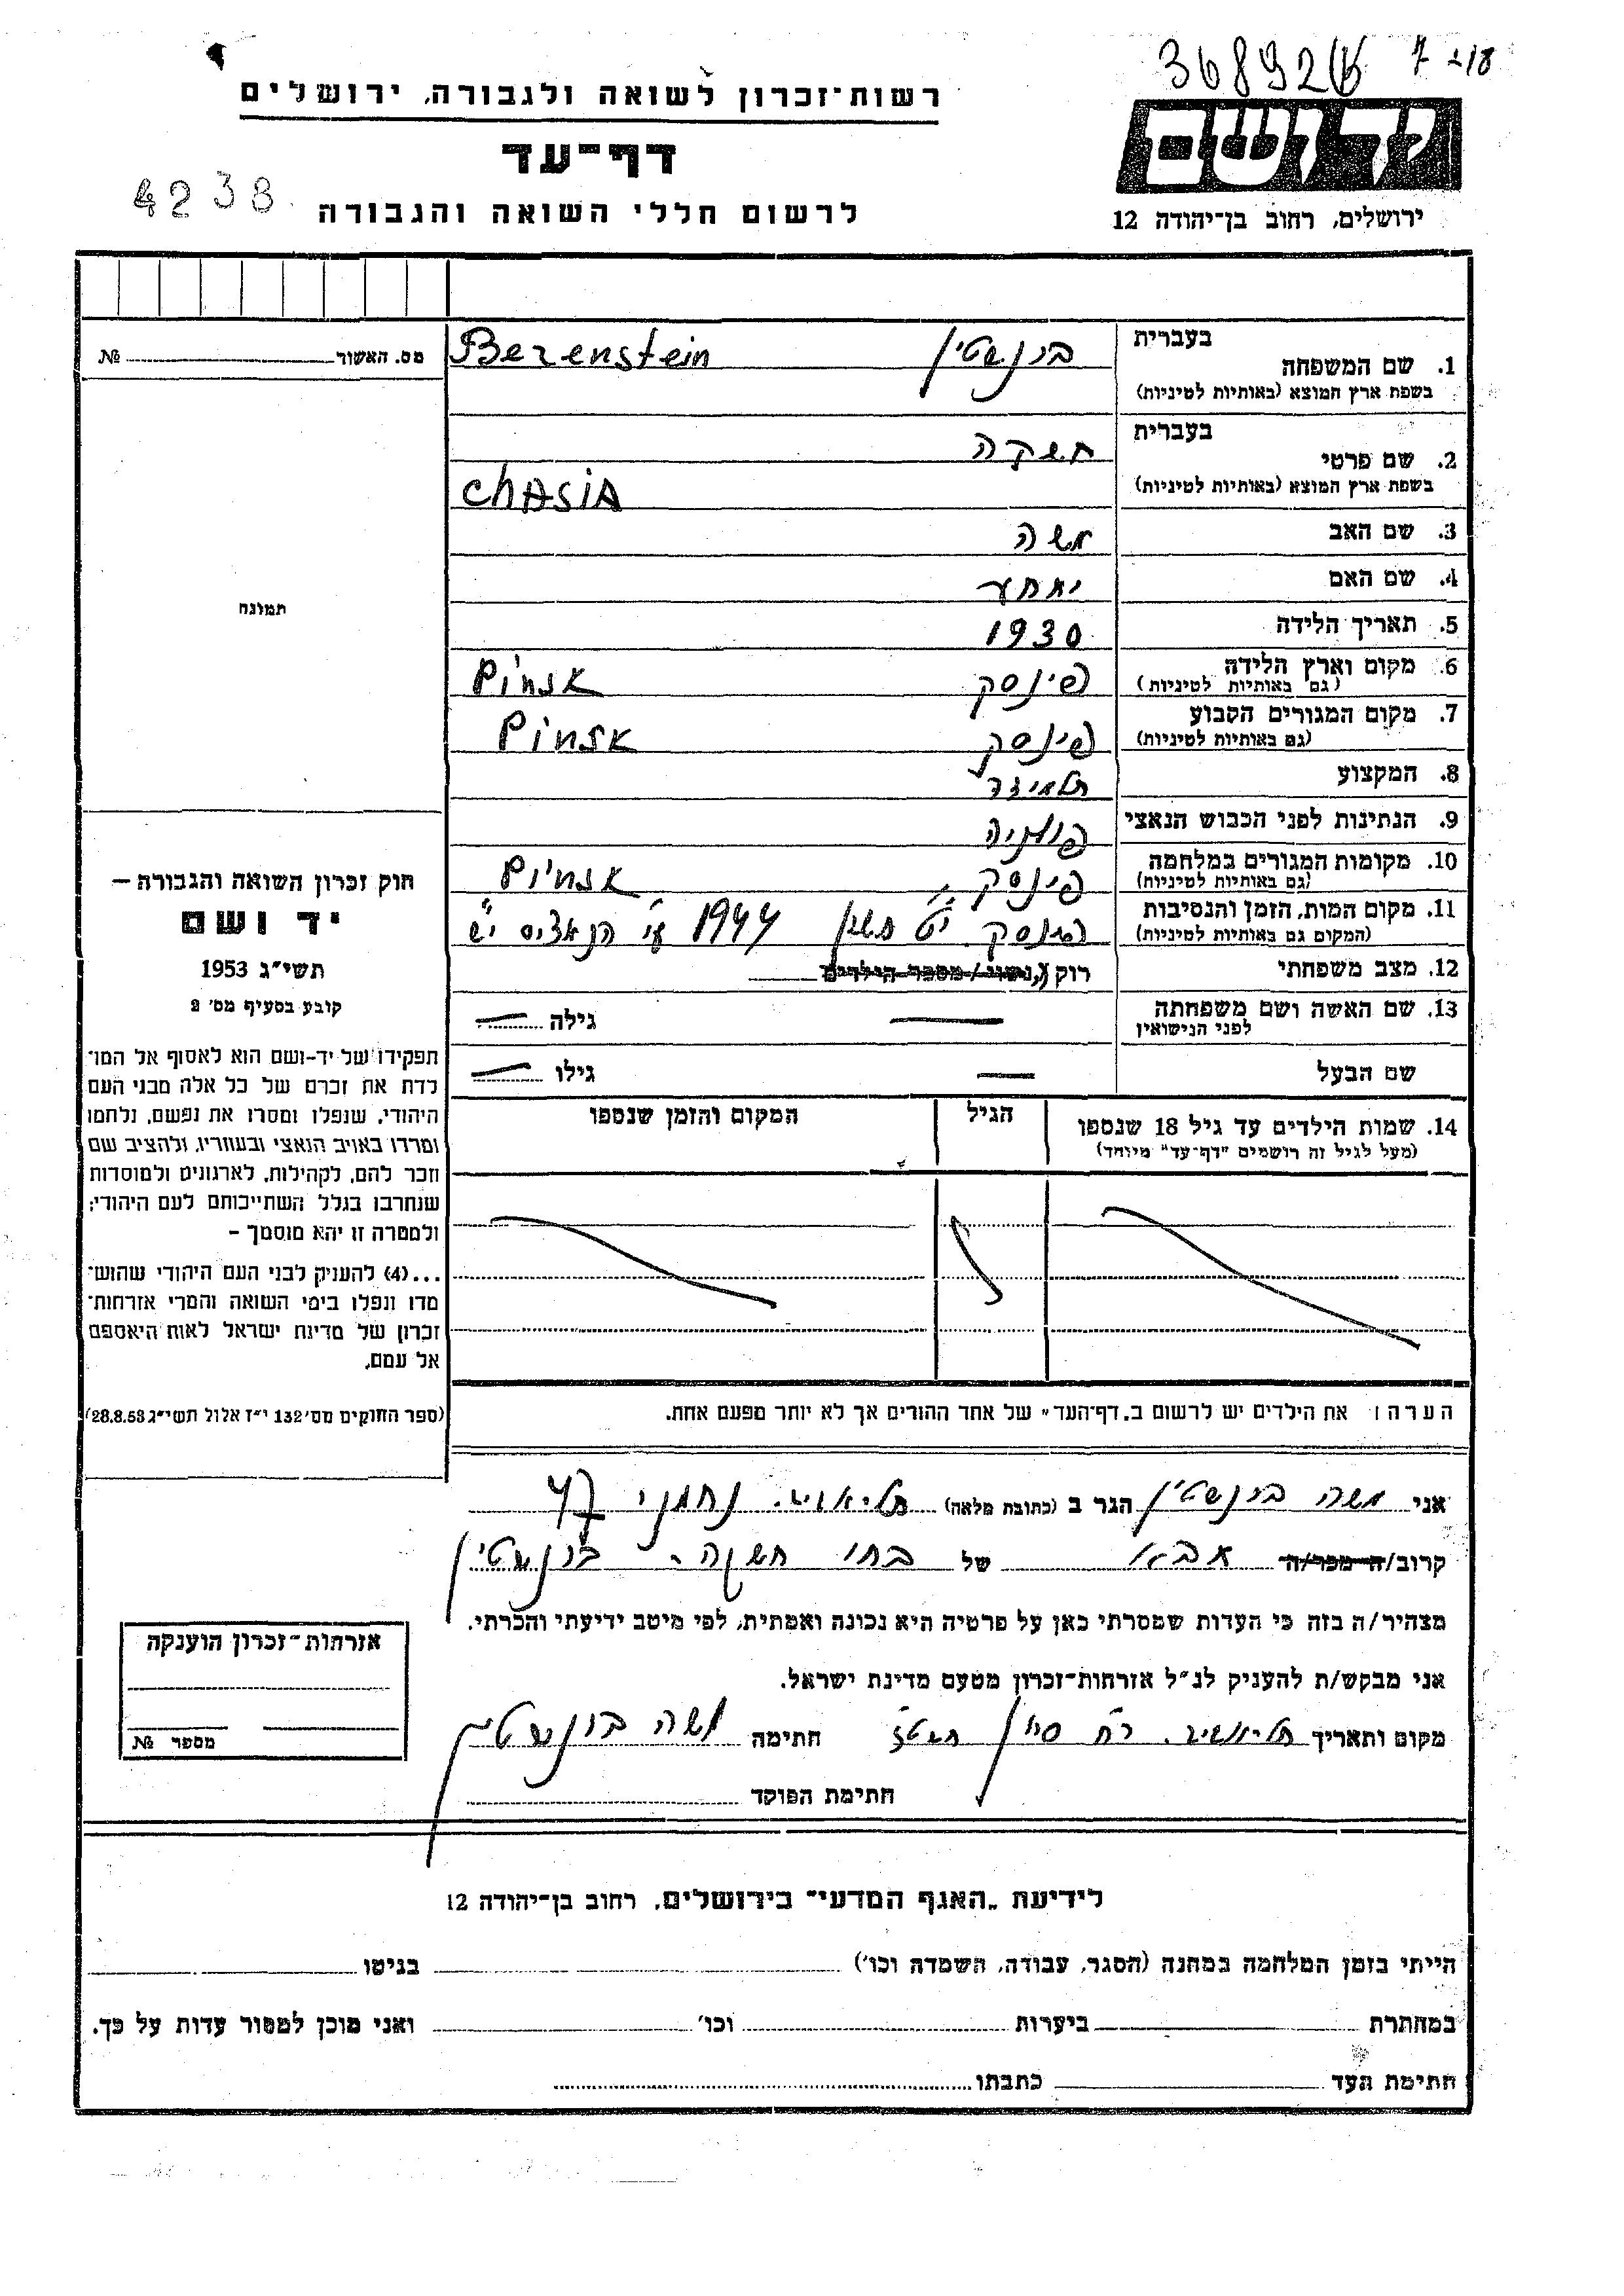 368926 7-18
רשות־זכרון לשואה ולגבורה, ירושלים
ידושם
דף־עד
4238
לרשום חללי השואה והגבורה
ירושלים, רחוב בן־יהודה 12
מס. האשור № 
בעברית
1. שם המשפחה
בשפת ארץ המוצא (באותיות לטיניות)
ברנשטין Berenstein
בעברית
2. שם פרטי
בשפת ארץ המוצא (באותיות לטיניות)
חשקה
ChASiA
3. שם האב משה
4. שם האם
5. תאריך הלידה 1930
6. מקום וארץ הלידה פינסק Pinsk
(גם באותיות לטיניות)
7. מקום המגורים הקבוע פינסק Pinsk
(גם באותיות לטיניות)
8. המקצוע תלמידה
9. הנתינות לפני הכבוש הנאצי פולניה
10. מקומות המגורים במלחמה פינסק Pinsk
(גם באותיות לטיניות)
11. מקום המות, הזמן והנסיבות פינסק י"ט חשון 1944 ע"י הנאצים יש"
(המקום גם באותיות לטיניות)
12. מצב משפחתי רוק/ נשוי/ מספר הילדים
13. שם האשה ושם משפחתה גילה
לפני הנישואין
שם הבעל גילו
14. שמות הילדים עד גיל 18 שנספו הגיל המקום והזמן שנספו
(מעל לגיל זה רושמים "דף־עד" מיוחד)
הערה: את הילדים יש לרשום ב„דף־העד" של אחד ההורים אך לא יותר מפעם אחת.
תמונה
חוק זכרון השואה והגבורה —
יד ושם
תשי"ג 1953
קובע בסעיף מס' 2
תפקידו של יד-ושם הוא לאסוף אל המו־
לדת את זכרם של כל אלה מבני העם
היהודי, שנפלו ומסרו את נפשם, נלחמו
ומרדו באויב הנאצי ובעוזריו, ולהציב שם
וזכר להם, לקהילות, לארגונים ולמוסדות
שנחרבו בגלל השתייכותם לעם היהודי;
ולמטרה זו יהא מוסמך —
...(4) להעניק לבני העם היהודי שהוש־
מדו ונפלו בימי השואה והמרי אזרחות־
זכרון של מדינת ישראל לאות היאספם
אל עמם.
(ספר החוקים מס' 132 י"ז אלול תשי"ג 28.8.53)
אני משה ברנשטין הגר ב (כתובת מלאה) תל־אביב. נחמני 47
קרוב/ה מכר/ה אביו של בתו חשקה. ברנשטין
מצהיר/ה בזה כי העדות שמסרתי כאן על פרטיה היא נכונה ואמתית, לפי מיטב ידיעתי והכרתי.
אני מבקש/ת להעניק לנ"ל אזרחות־זכרון מטעם מדינת ישראל.
מקום ותאריך תל־אביב. ר"ח סיון תשט"ז חתימה משה ברנשטין
חתימת הפוקד
אזרחות־זכרון הוענקה
מספר №
לידיעת „האגף המדעי" בירושלים, רחוב בן־יהודה 12
הייתי בזמן המלחמה במחנה (הסגר, עבודה, השמדה וכו') בגיטו
במחתרת ביערות וכו' ואני מוכן למסור עדות על כך.
חתימת העד כתבתו